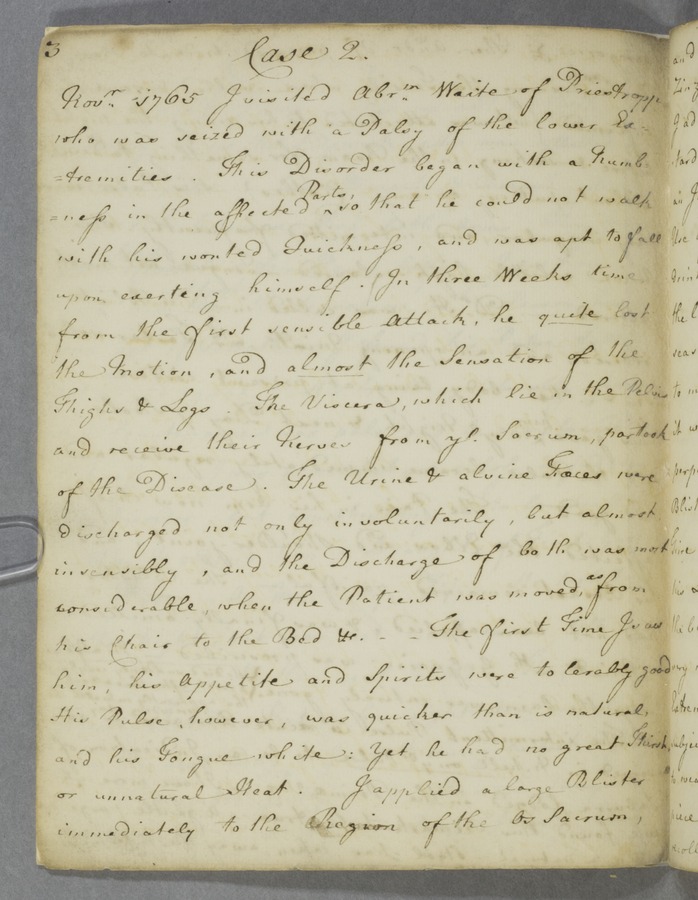 3
Case 2.
Novr. 1765 I visited Abrm. Waite of Priestropp
who was seized with a Palsy of the lower Ex-
=tremities. This Disorder began with a Numb-
Parts,
=ness in the affected ^ so that he could not walk
with his wonted Quickness, and was apt to fall
upon exerting himself. In three Weeks time
from the first sensible Attack, he quite lost
the Motion, and almost the Sensation of the
Thighs & Legs. The Viscera, which lie in the Pelvis
and receive their Nerves from ye. Sacrum, partook
of the Disease. The Urine & alvine Fæces were
discharged not only involuntarily, but almost
insensibly, and the Discharge of both was most
considerable, when the Patient was moved, as from
his Chair to the Bed &c. - - The first Time I saw
him, his Appetite and Spirits were tolerably good
His Pulse, however, was quicker than is natural,
and his Tongue white: Yet he had no great Thirst,
or unnatural Heat. I applied a large Blister
immediately to the Region of the Os Sacrum,